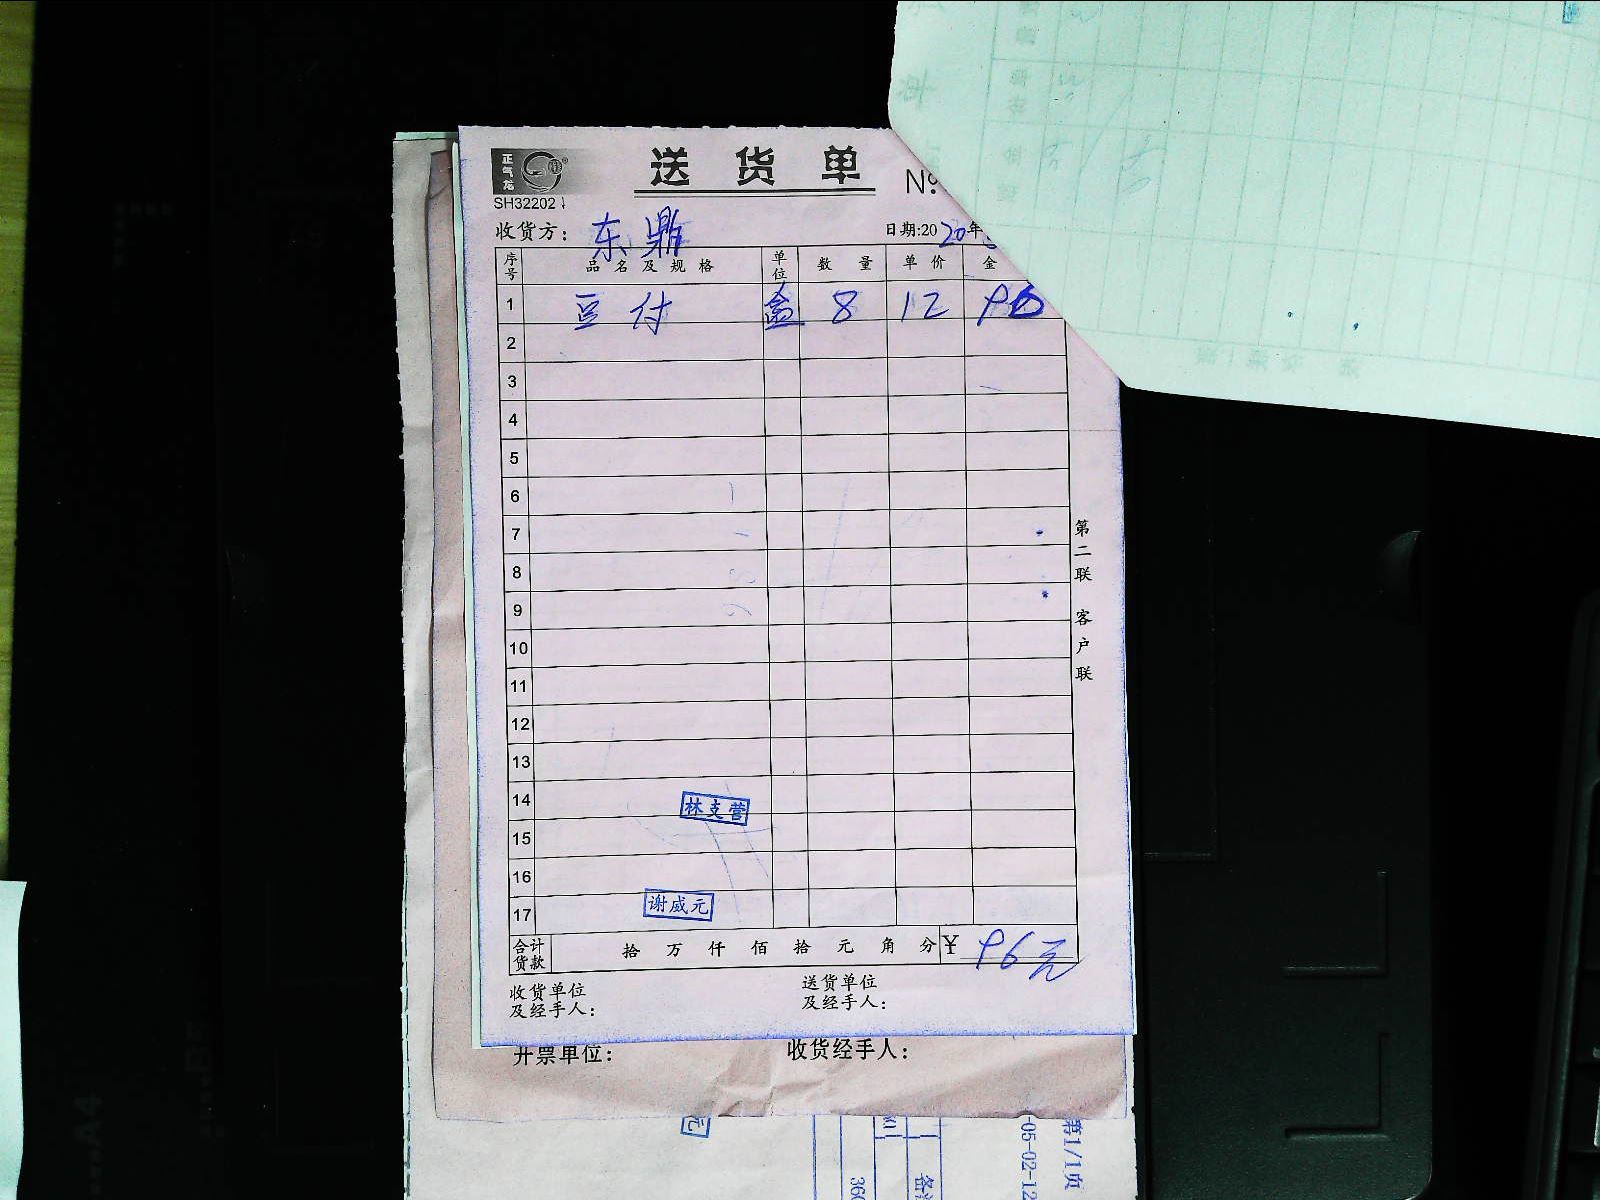 正气龙
送 货 单 №
SH32202
收货方： 东鼎 日期:2020年
序号 品名及规格 单位 数量 单价 金
1 豆付 盒 8 12 96
2
3
4
5
6
7
8
9
10
11
12
13
14
林支营
15
16
谢威元
17
合计货款 拾 万 仟 佰 拾 元 角 分 ¥ 96元
收货单位及经手人：
送货单位及经手人：
第二联 客户联
开票单位： 收货经手人：
元
第1/1页
-05-02-12
360
A4